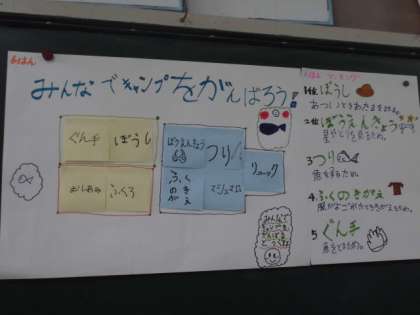 6はん
みんなでキャンプをがんばろう!
ぐん手
ぼうし
ふくろ
ぼうえんきょう
つり
ふくのきがえ
マシュマロ
リュック
みんなで
ランキング
1位 ぼうし
あついときあたまをまもる。
2位 ぼうえんきょう
星やとりを見るため。
3 つり
魚をするため。
4. ふくのきがえ
服がよごれたらきがえるため。
5 ぐん手